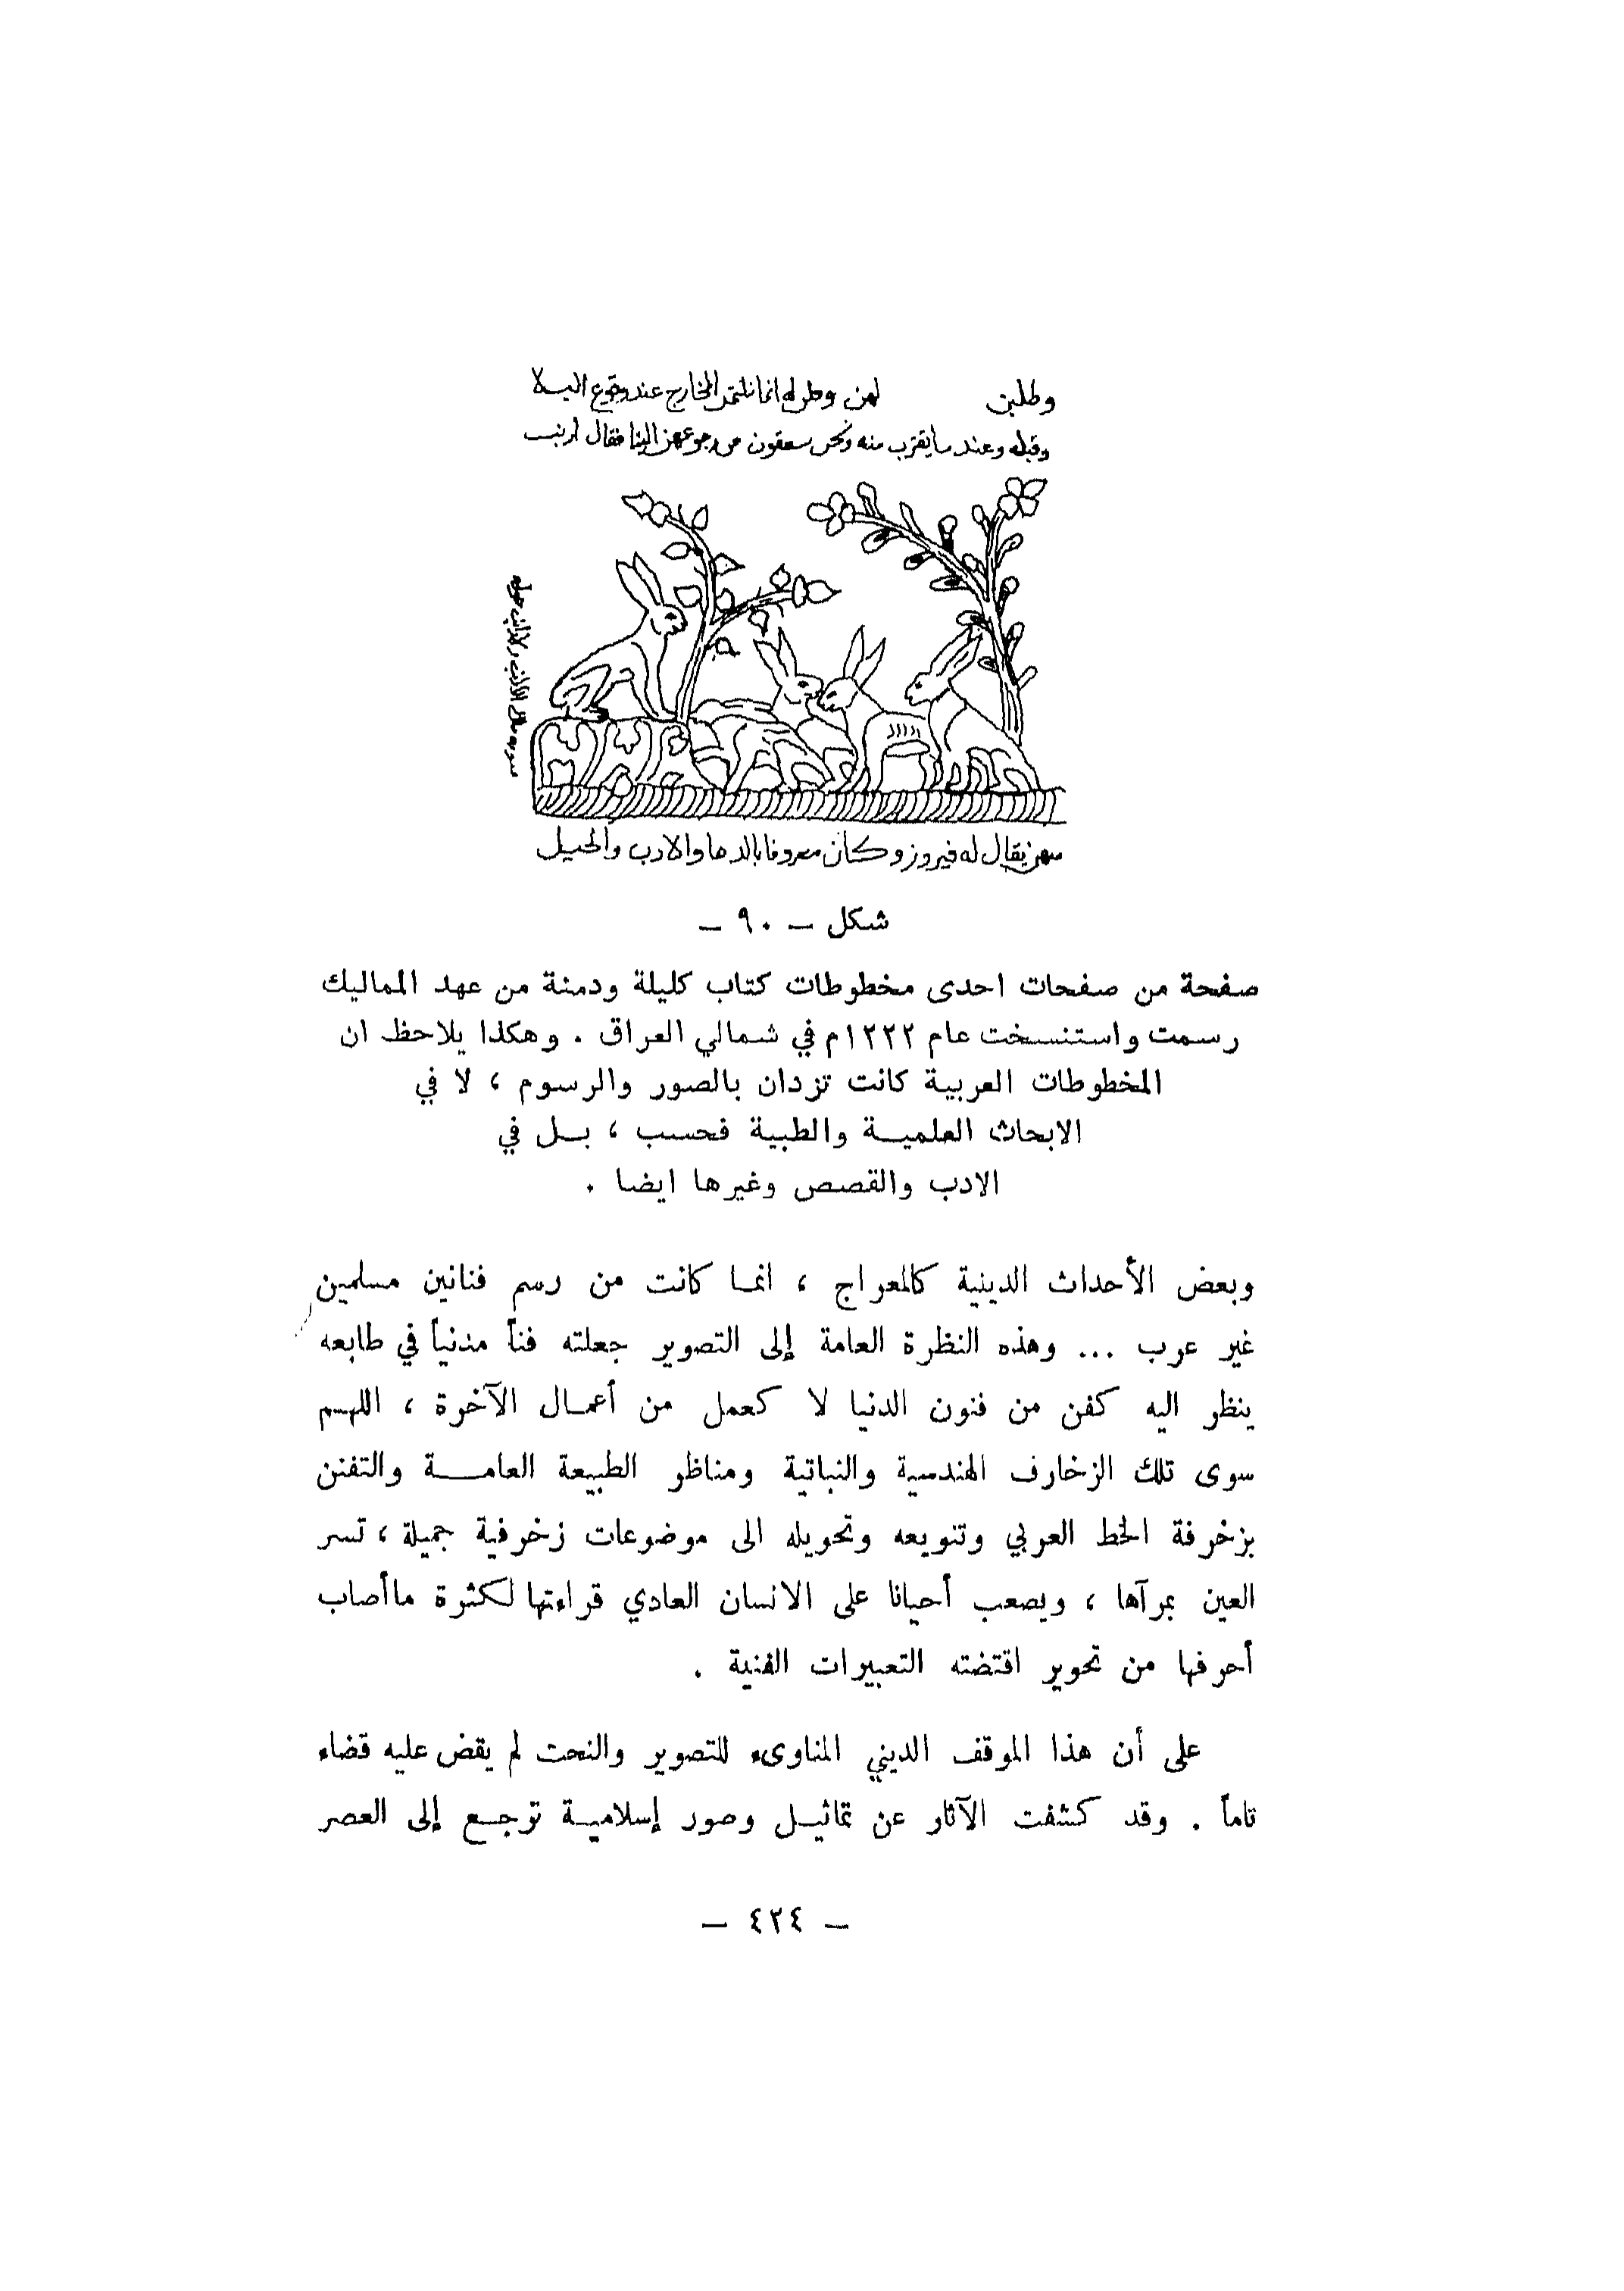 وطلبن لهن وطر له انما نلتمس المخارج عند وقوع البلا
وقبله وعند ما يقرب منه ونحن من رجوعهن الينا فقال ارنب
صورة ملك الأرانب والأرانب حوله
منهن يقال له فيروز وكان معروفا بالدها والادب والحيل
شكل – ٩٠ –
صفحة من صفحات احدى مخطوطات كتاب كليلة ودمنة من عهد المماليك
رسمت واستنسخت عام ١٢٢٢م في شمالي العراق . وهكذا يلاحظ ان
المخطوطات العربية كانت تزدان بالصور والرسوم ، لا في
الابحاث العلمية والطبية فحسب ، بل في
الادب والقصص وغيرها ايضا .
وبعض الأحداث الدينية كالمعراج ، انما كانت من رسم فنانين مسلمين
غير عرب ... وهذه النظرة العامة إلى التصوير جعلته فناً مدنياً في طابعه
ينظر اليه كفن من فنون الدنيا لا كعمل من أعمال الآخرة ، اللهم
سوى تلك الزخارف الهندسية والنباتية ومناظر الطبيعة العامة والتفنن
بزخرفة الخط العربي وتنويعه وتحويله الى موضوعات زخرفية جميلة ، تسر
العين بمرآها ، ويصعب أحيانا على الانسان العادي قراءتها لكثرة ماأصاب
أحرفها من تحوير اقتضته التعبيرات الفنية .
على أن هذا الموقف الديني المناوىء للتصوير والنحت لم يقض عليه قضاء
تاماً . وقد كشفت الآثار عن تماثيل وصور إسلامية ترجع إلى العصر
– ٤٢٤ –